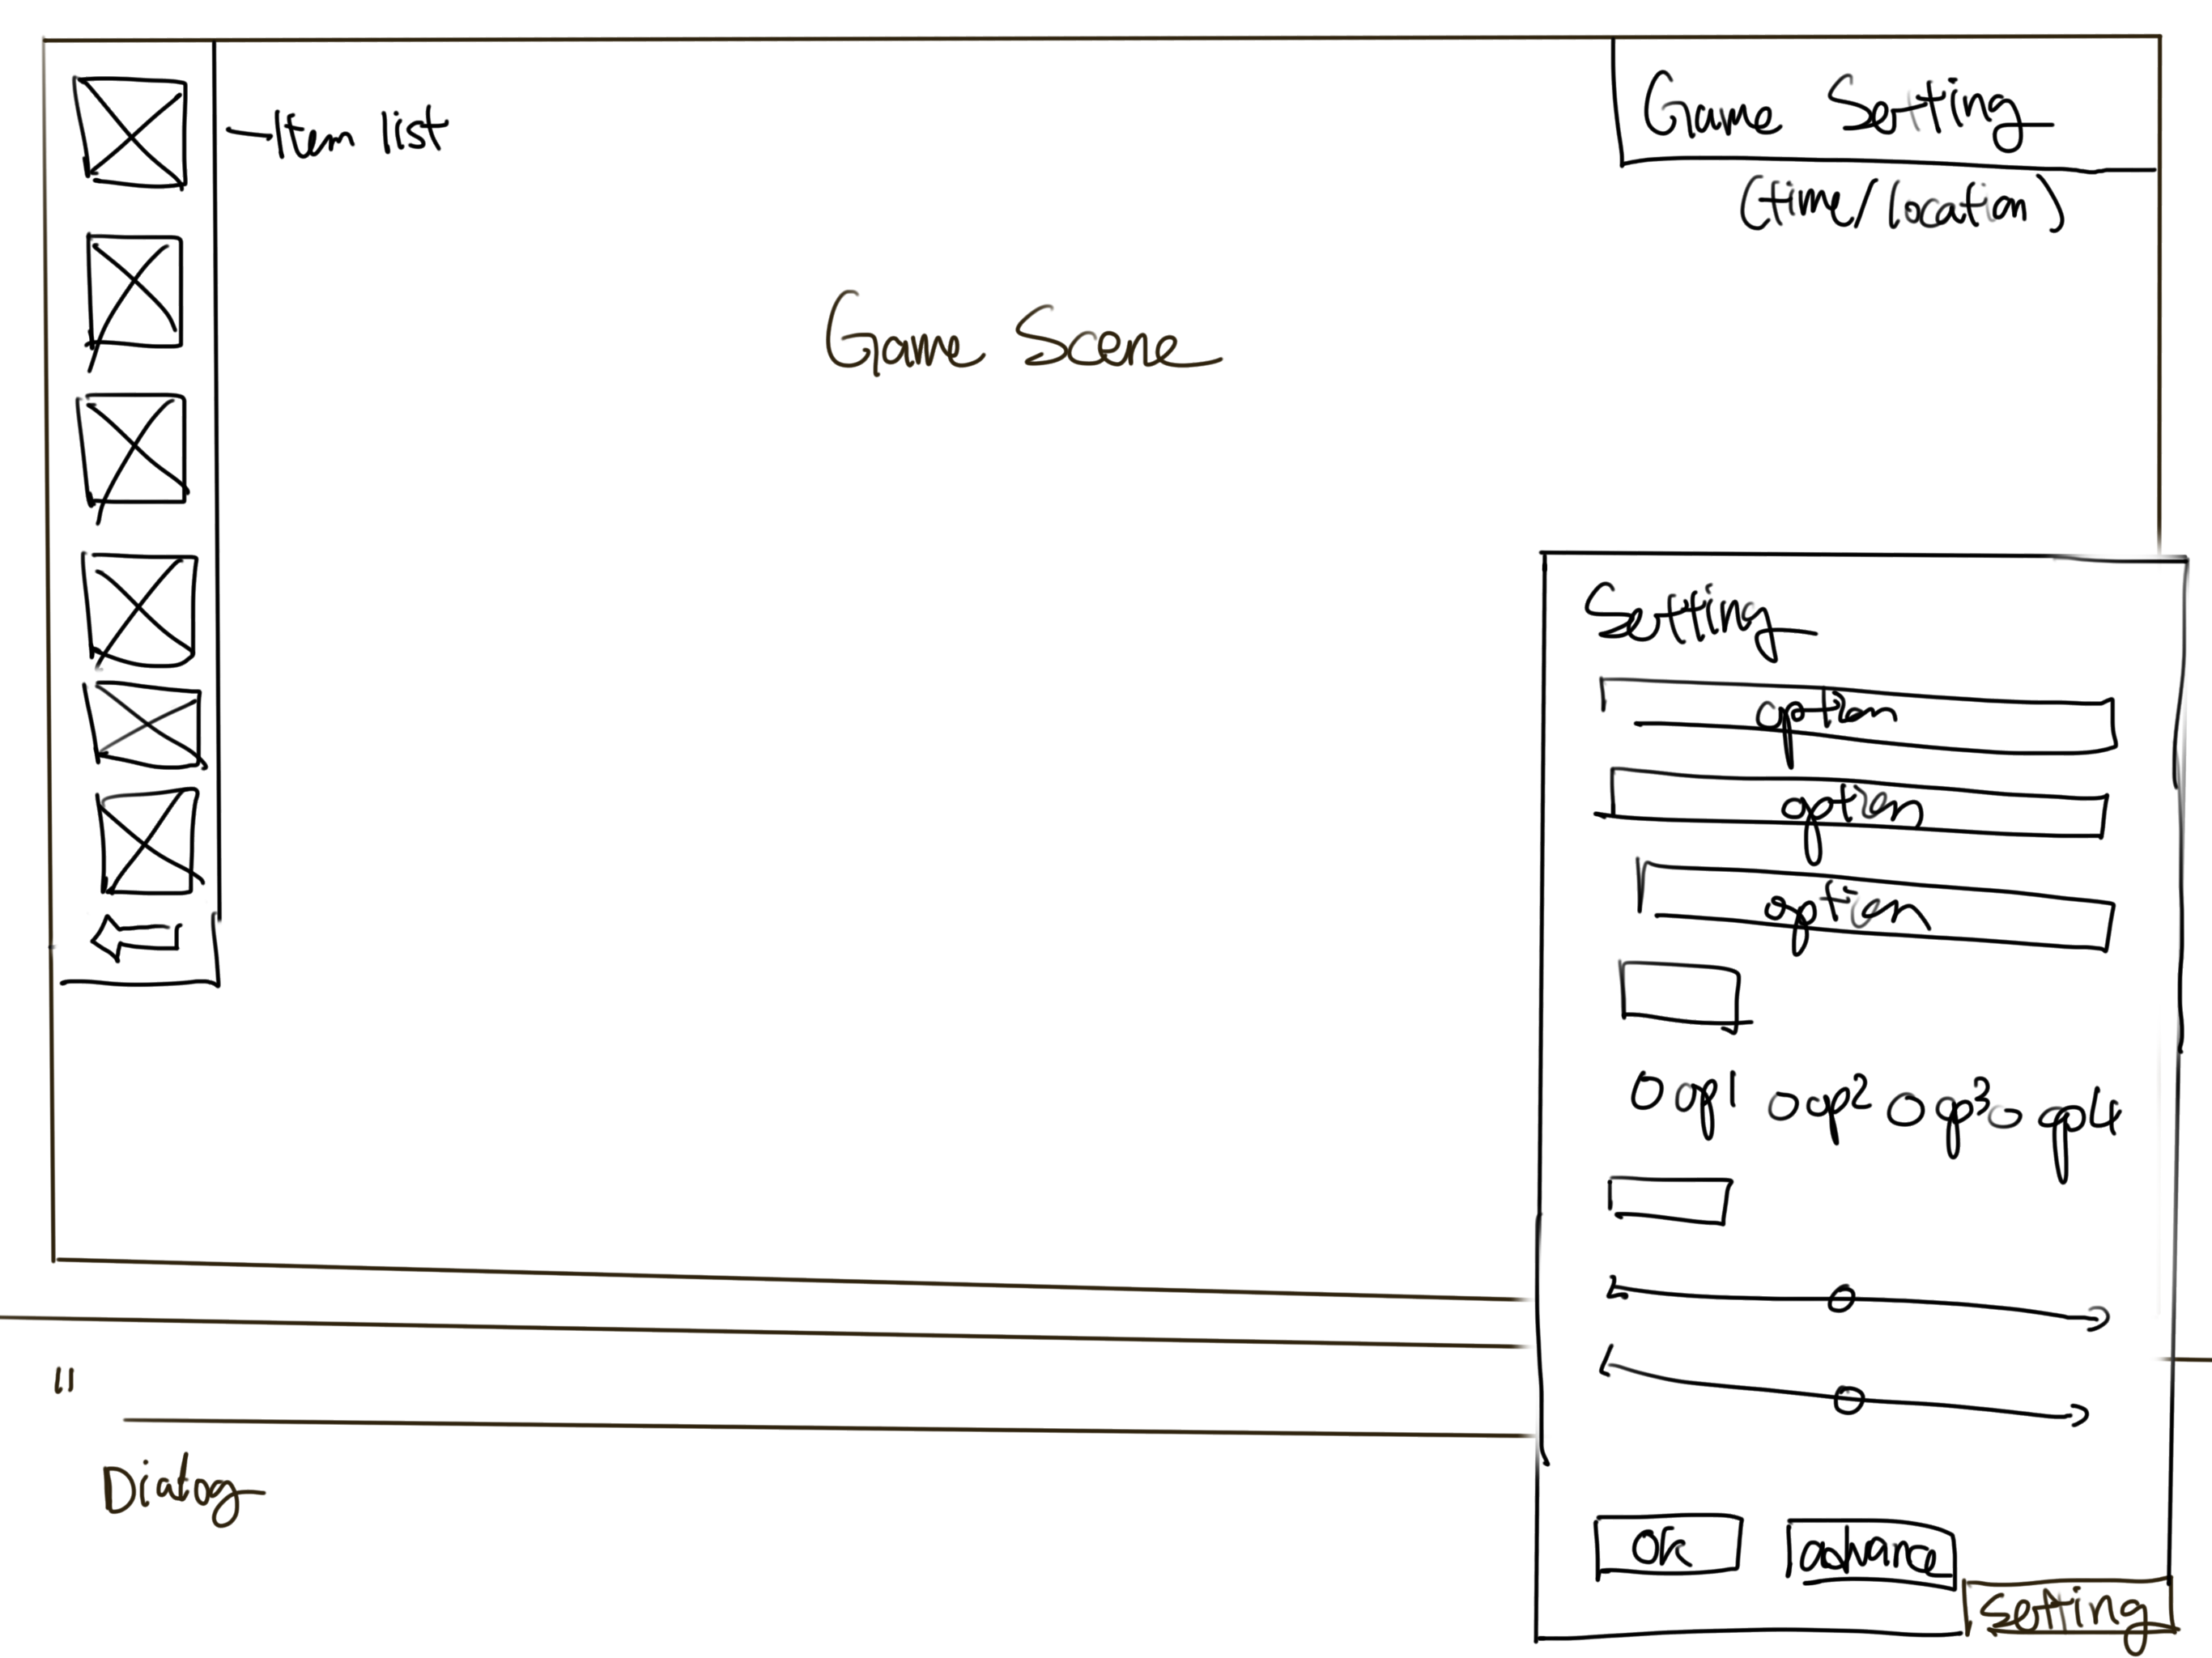 Item list
Game Setting
(time/location)
Game Scene
Setting
option
option
option
O op1 O op2 O op3 O op4
"
Dialog
OK
advance
setting